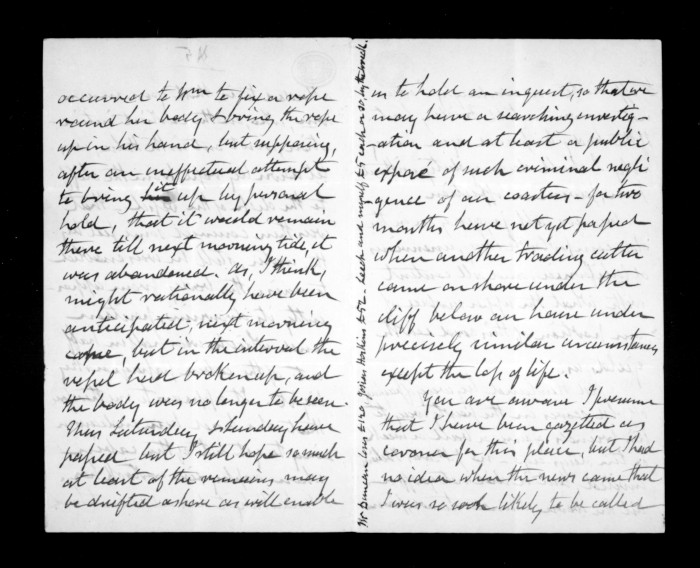 occurred to Wm to fix a rope
round her body & bring the rope
up in his hand, but supposing,
after an ineffectual attempt
to bring it up by personal
hold, that it would remain
there till next morning tide, it
was abandoned. As, I think,
might rationally have been
anticipated, next morning
came, but in the interval the
vessel had broken up, and
the body was no longer to be seen.
Thus Saturday & Sunday have
passed but I still hope so much
at least of the remains may
be drifted ashore as will enable
us to hold an inquest, so that we
may have a searching investig-
-ation and at least a public
exposé of such criminal negli
-gence of our coasters - for two
months have not yet passed
when another trading cutter
came on shore under the
cliff below our house under
precisely similar circumstances
except the loss of life.
You are aware I presume
that I have been gazetted as
coroner for this place, but I had
no idea when the news came that
I was so soon likely to be called
Mr Duncan loses £120, Hoskins £52 - Leech and myself £5 each or so by the wreck.